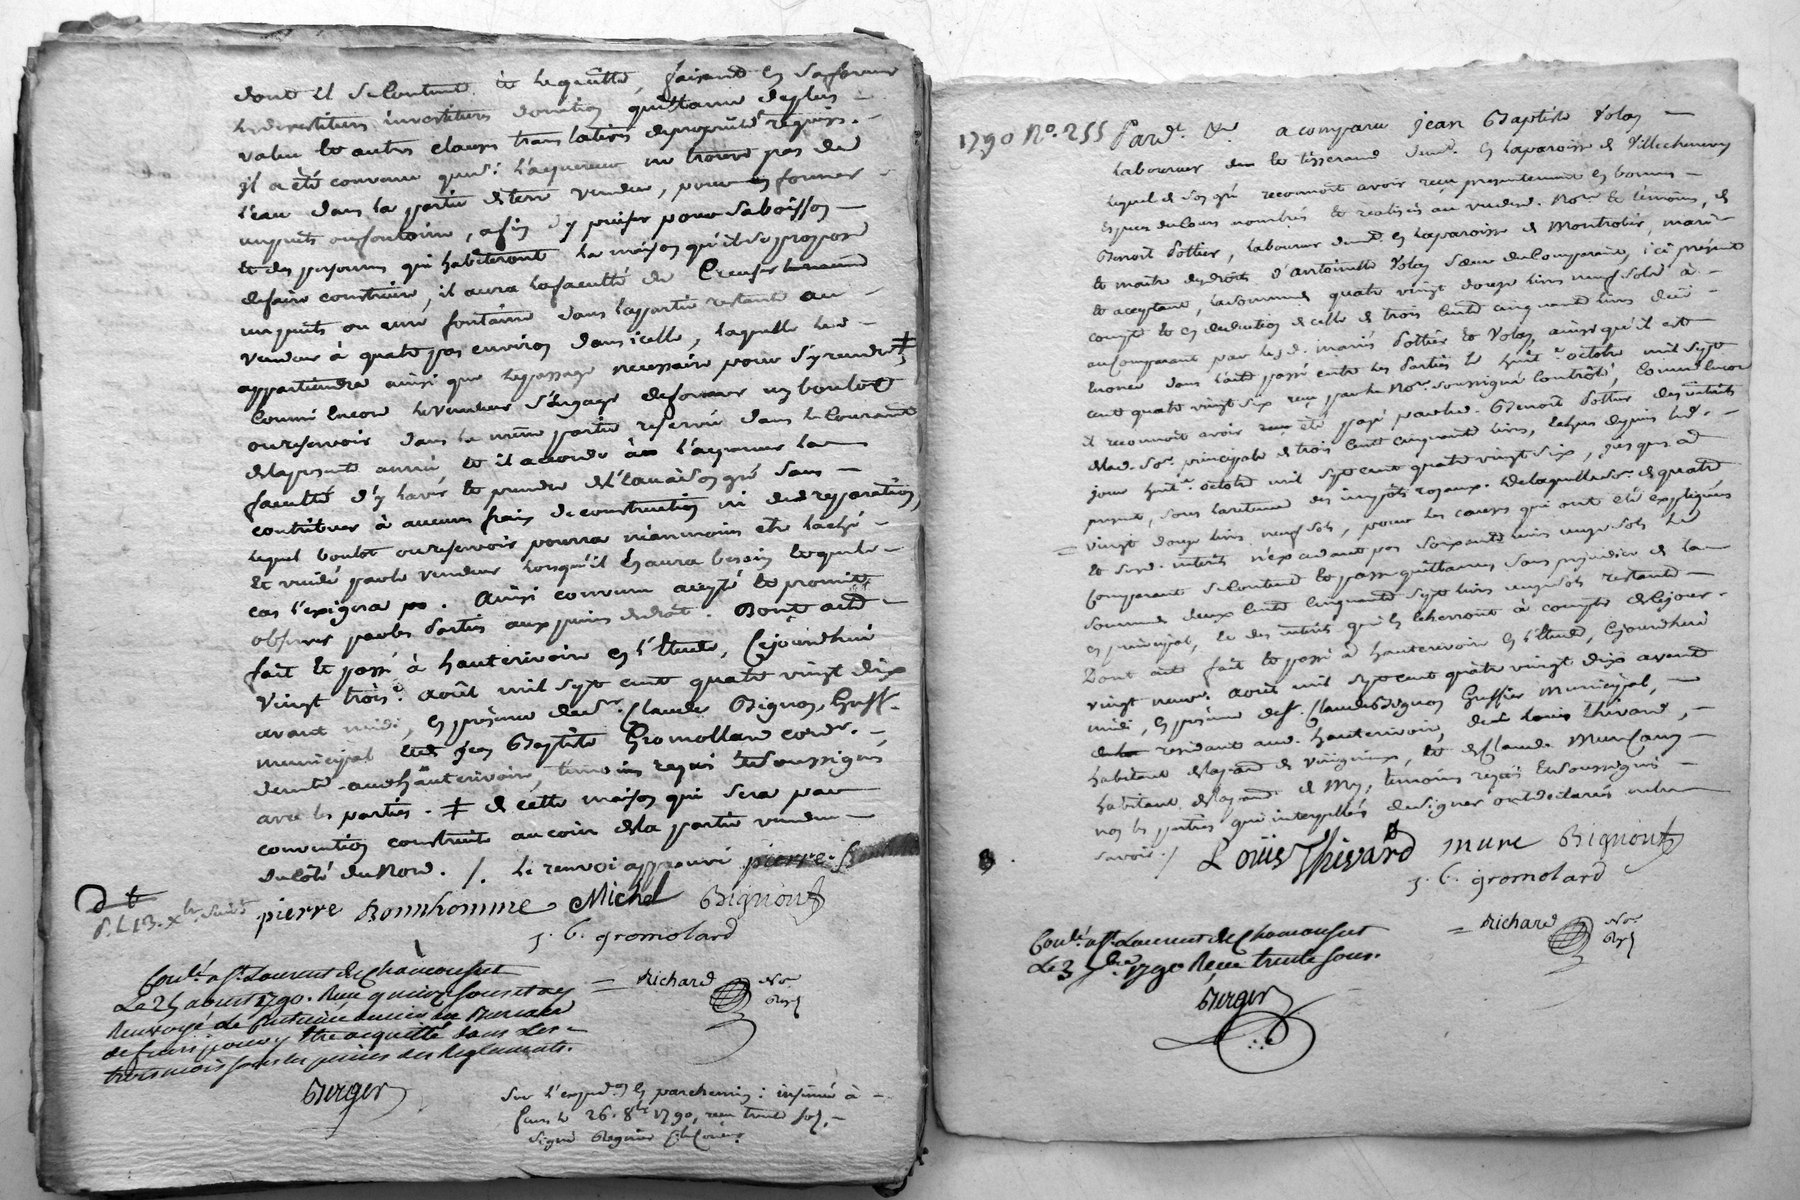 dont il se contente et le quitte, faisant en sa faveur
les devestitures investitures donation quittance de plus
value et autres clauses translatives de propriété requises.
il a été convenu que si l'acquereur ne trouve pas de
l'eau dans la partie de terre vendue, pour en former
un puits ou fontaine, afin d'y puiser pour sa boisson
et des personnes qui habiteront la maison qu'il se propose
de faire construire, il aura la faculté de creuser
un puits ou une fontaine dans la partie restante au
vendeur à quatre pas environ dans icelle, laquelle lui
appartiendra ainsi que le passage necessaire pour s'y rendre ‡
comme encore le vendeur s'engage de former un boutot
ou reservoir dans la même partie reservée dans le courant
de la presente année et il accorde à l'acquereur la
faculté d'y lavér et prendre de l'eau à son gré sans
contribuer à aucuns frais de construction ni de reparation,
lequel boutot ou reservoir pourra néanmoins etre laché
et vuidé par le vendeur lorsqu'il en aura besoin et que le
cas l'exigera. Ainsi convenu accepté et promit
observer par les parties aux peines de droit. Dont acte
fait et passé à hauterivoire en l'etude, cejourdhui
vingt trois.e août mil sept cent quatre vingt dix
avant midi, en présence de s.r Claude Bignon, Greff.
municipal et de jean Baptiste Gromollard cord.r
demt. aud. hauterivoire, temoins requis et soussignés
avec les parties. ‡ de cette maison qui sera par
convention construite au coin de la partie vendue
du côté du Nord. /. le renvoi approuvé pierre
pierre Bonnhomme Michel Bignon
j. b. gromolard
= Richard No.re
Roy.l
Con.lé a St. Laurent de Chamousset
Le 25 aoust 1790. Reçu quinze sous et ay
Renvoyé le
trois mois sous les peines des Reglements.
Berger
Sur l'exped.on en parchemin : insinué à
le 26. 8bre 1790, reçu trente sols.
signé
1790 No. 255 Pard.t &a a comparu jean Baptiste Volay
laboureur et tisserand demt. en la paroisse de Villechenevy
lequel de son gré reconnoit avoir reçu presentement en bonnes
especes de cours nombrés et realisés au vu de Nore. et témoins, de
Benoit Pottier, laboureur demt. en la paroisse de Montrotier, mari
et maitre des droits d'antoinette Volay sœur du Comparant, ici présent
et acceptant, la somme de quatre vingt douze livres neuf sols à
compte et en deduction de celle de trois cent cinquante livres due
au comparant par lesd. mariés Pottier et Volay, ainsi qu'il est
énoncé dans l'acte passé entre les parties le huit.e octobre mil sept
cent quatre vingt six reçu par le Nore. soussigné Contrôlé, Comme encore
il reconnoit avoir été payé par led. Benoit Pottier des interêts
de lad. so.e principale de trois cent cinquante livres, echus depuis led.
jour huit.e octobre mil sept cent quatre vingt six, jusques à
present, sous la retenue des impôts royaux. de laquelle so.e de quatre
vingt douze livres neuf sols, pour les causes qui ont été expliquées
et sesd. interêts n'excedant pas soixante livres onze sols le
Comparant se contente et passe quittance sans prejudice de la
somme de deux cent cinquante sept livres onze sols restante
en principal, et des interêts qui en echerront à compter de ce jour.
Dont acte fait et passé à hauterivoire en l'etude, cejourdhui
vingt neuf.e août mil sept cent quatre vingt dix avant
midi, en présence de s.r Claude Bignon Greffier Municipal,
residant aud. hauterivoire, de louis thivard,
habitant de la par. de Viricinix, et de Claude Mure
habitant de la par. de Mey, temoins requis et soussignés
non les parties qui interpellées de signer ont declaré ne le
savoir. /. Louis Thivard mure Bignon
j. b. gromolard
= Richard No.re
Roy.l
Con.lé a St. Laurent de Chamousset
Le 3 7bre 1790 Reçu trente sous.
Berger